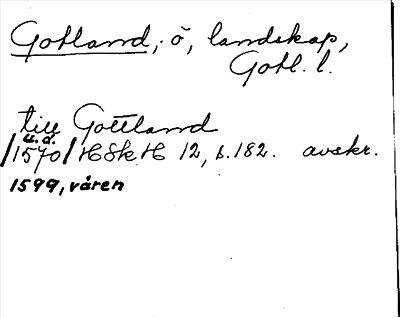 Gotland, ö, landskap,
Gotl. l.
till Gottland
u.d.
/1570/ HSkH 12, s. 182. avskr.
1599, våren